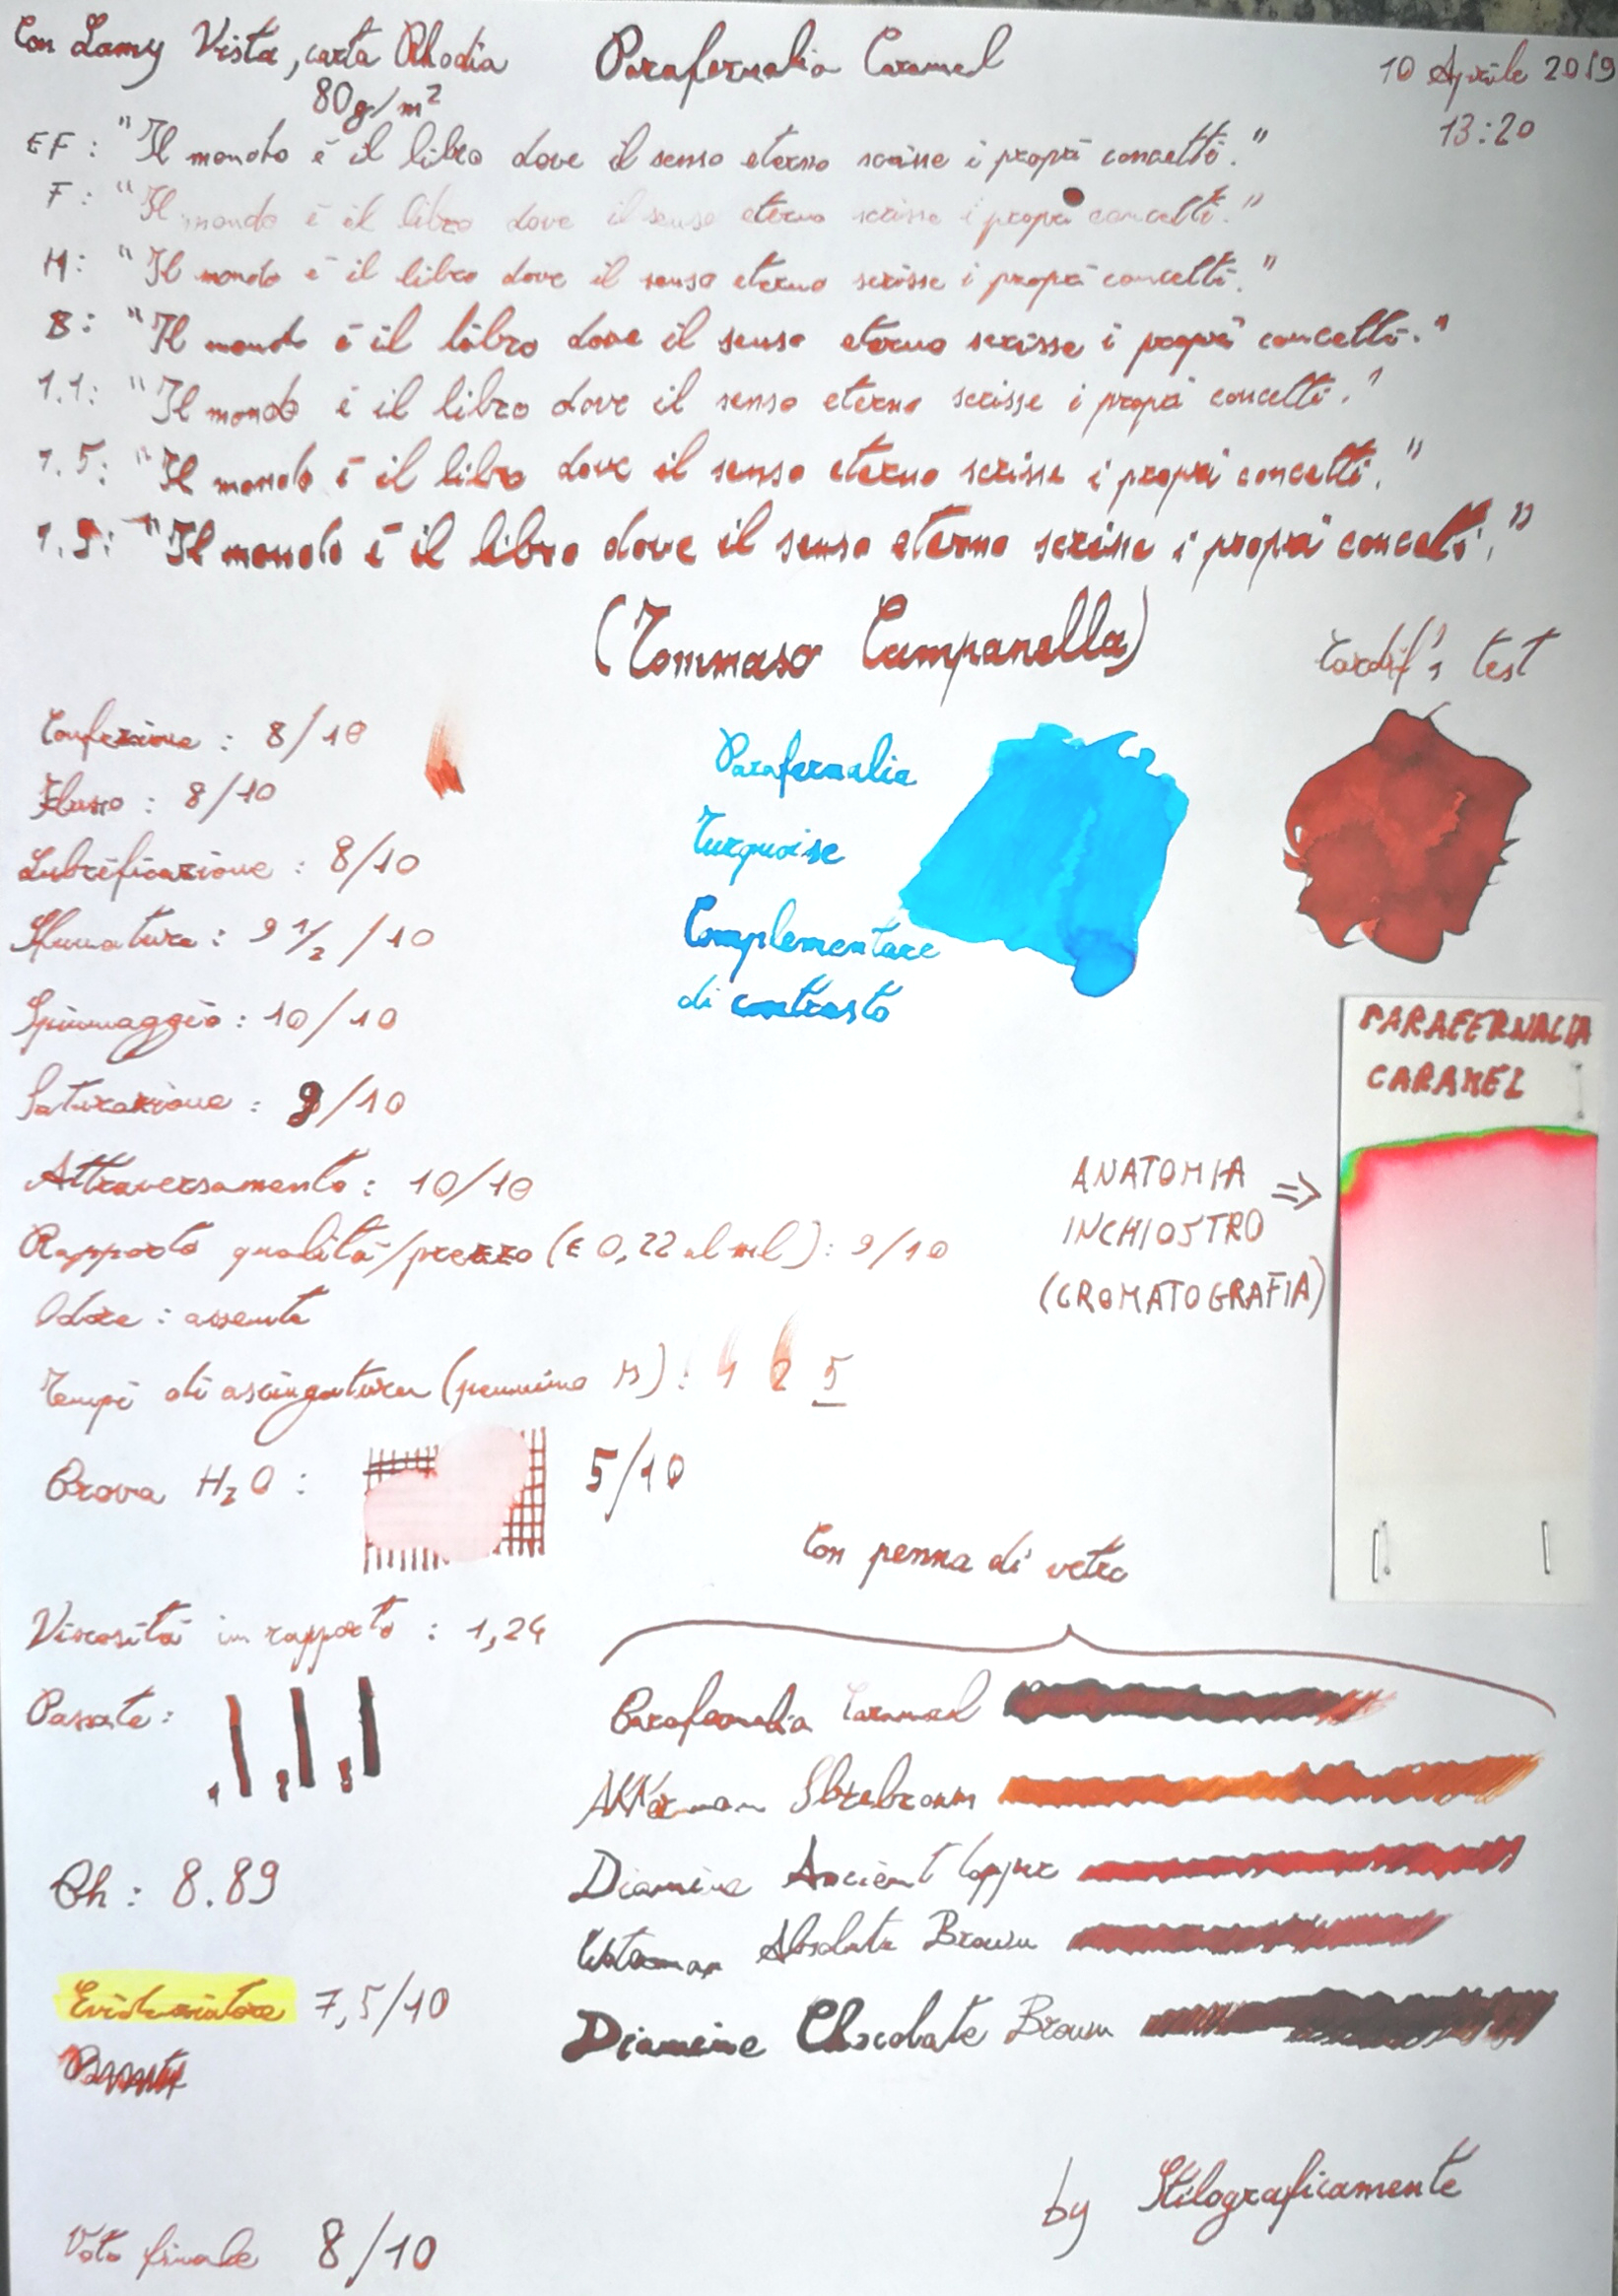 Con Lamy Vista, carta Rhodia
80g/m²
Parafernalia Caramel
10 Aprile 2019
13:20
EF: "Il mondo è il libro dove il senso eterno scrisse i propri concetti."
F: "Il mondo è il libro dove il senso eterno scrisse i propri concetti."
M: "Il mondo è il libro dove il senso eterno scrisse i propri concetti."
B: "Il mondo è il libro dove il senso eterno scrisse i propri concetti."
1.1: "Il mondo è il libro dove il senso eterno scrisse i propri concetti."
1.5: "Il mondo è il libro dove il senso eterno scrisse i propri concetti."
1.9: "Il mondo è il libro dove il senso eterno scrisse i propri concetti."
(Tommaso Campanella)
Confezione: 8/10
Flusso: 8/10
Lubrificazione: 8/10
Sfumature: 9 1/2 /10
Spiumaggio: 10/10
Saturazione: 9/10
Attraversamento: 10/10
Rapporto qualità/prezzo (€ 0,22 al ml): 9/10
Odore: assente
Tempi di asciugatura (pennino M): 1 2 5
Prova H₂O: 5/10
Viscosità in rapporto: 1,24
Passate: 1, 2, 3
Ph: 8.89
Evidenziatore 7,5/10
Voto finale 8/10
Parafernalia
Turquoise
Complementare
di contrasto
Tardif's test
PARAFERNALIA
CARAMEL
ANATOMIA =>
INCHIOSTRO
(CROMATOGRAFIA)
Con penna di vetro
Parafernalia Caramel
AKKerman Sbrebrown
Diamine Ancient Copper
Waterman Absolute Brown
Diamine Chocolate Brown
by Stilograficamente